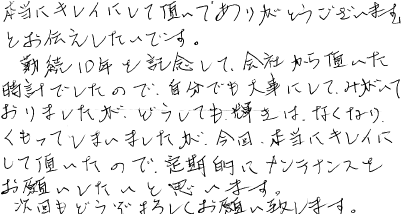 本当にキレイにして頂いてありがとうございます
とお伝えしたいです。
勤続10年を記念して、会社から頂いた
時計でしたので、自分でも大事にして、みがいて
おりましたが、どうしても輝きは、なくなり、
くもってしまいましたが、今回、本当にキレイに
して頂いたので、定期的にメンテナンスを
お願いしたいと思います。
次回もどうぞよろしくお願い致します。